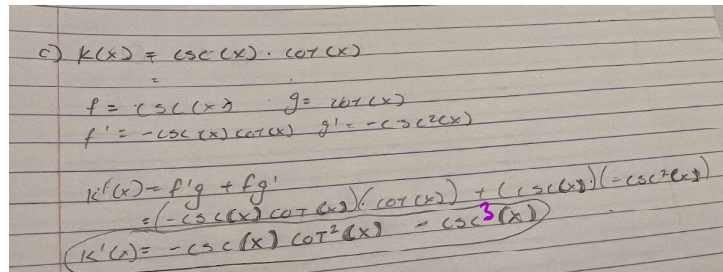 c) K(x) = csc(x) · cot(x)
f = csc(x) g = cot(x)
f' = -csc(x) cot(x) g' = -csc2(x)
k'(x) = f'g + fg'
= (-csc(x) cot(x))(cot(x)) + (csc(x))(-csc²(x))
K'(x) = -csc(x) cot²(x) - csc³(x)